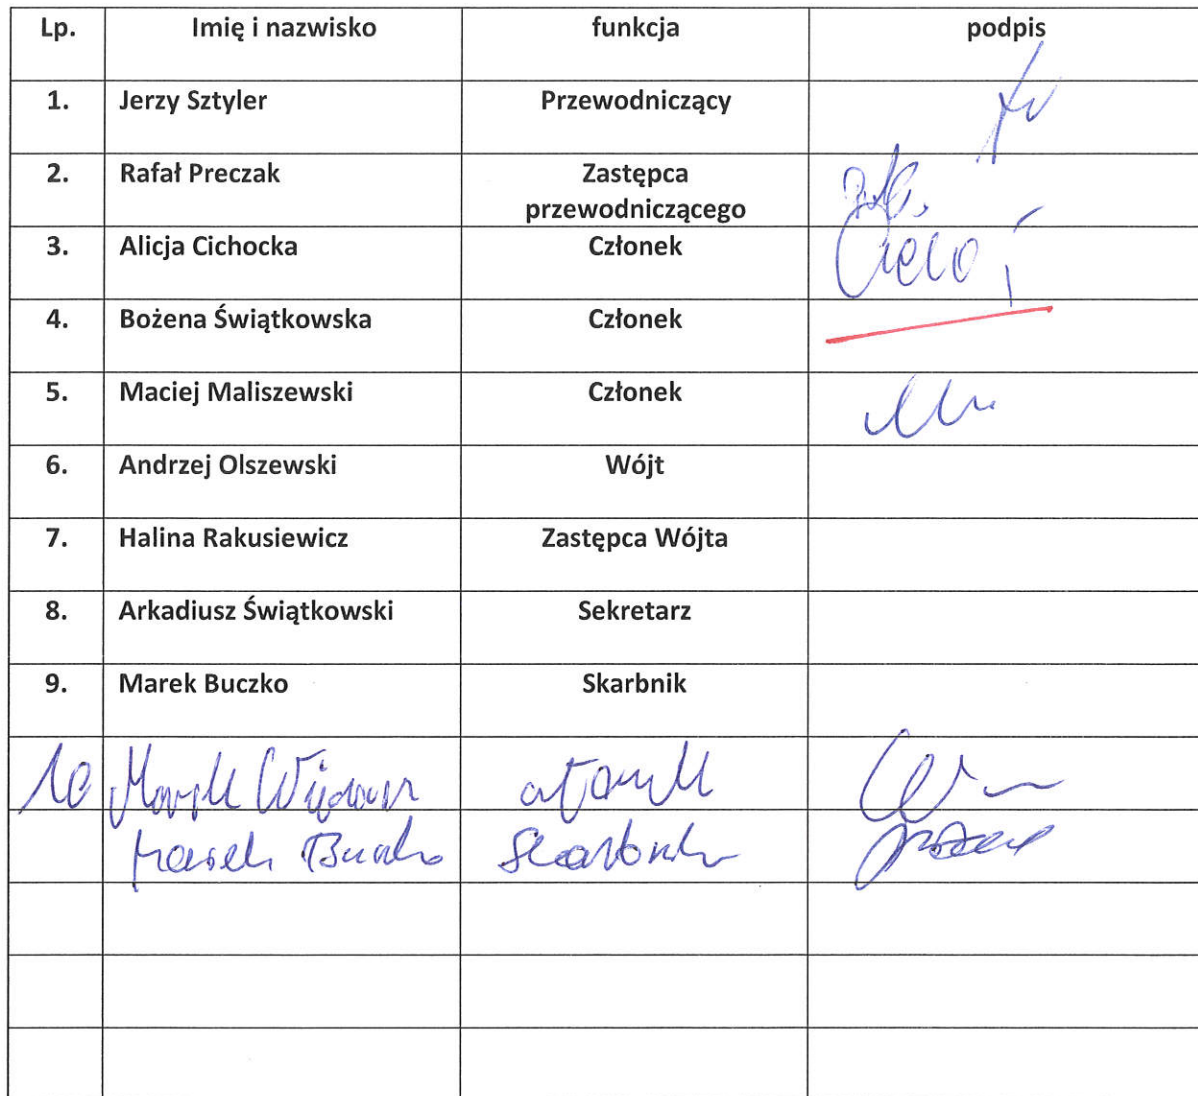 Lp. Imię i nazwisko funkcja podpis
1. Jerzy Sztyler Przewodniczący
2. Rafał Preczak Zastępca
przewodniczącego
3. Alicja Cichocka Członek
4. Bożena Świątkowska Członek
5. Maciej Maliszewski Członek
6. Andrzej Olszewski Wójt
7. Halina Rakusiewicz Zastępca Wójta
8. Arkadiusz Świątkowski Sekretarz
9. Marek Buczko Skarbnik
10
Marek Buczko Skarbnik